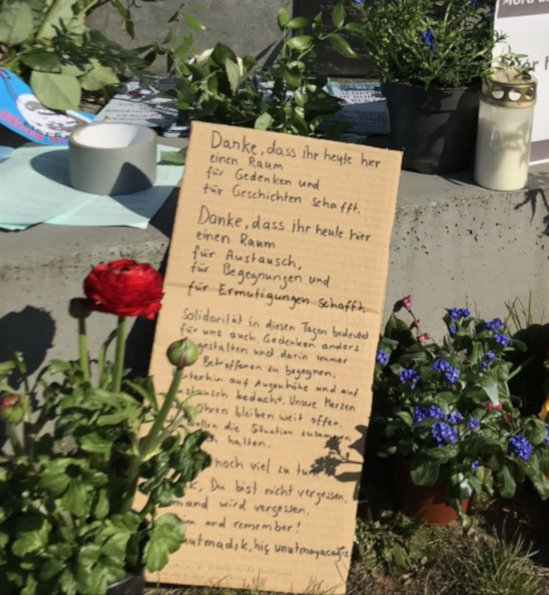 Danke, dass ihr heute hier
einen Raum
für Gedenken und
für Geschichten schafft.
Danke, dass ihr heute hier
einen Raum
für Austausch,
für Begegnungen und
für Ermutigungen schafft.
Solidarität in diesen Tagen bedeutet
für uns auch Gedenken anders
gestalten und darin immer
Betroffenen zu begegnen.
terhin auf Augenhöhe und auf
stausch bedacht. Unsere Herzen
Ohren bleiben weit offen.
wollen die Situation zusammen
halten.
noch viel zu tun
k, Du bist nicht vergessen.
mand wird vergessen.
m and remember!
utmadık, hiç unutmayacağız